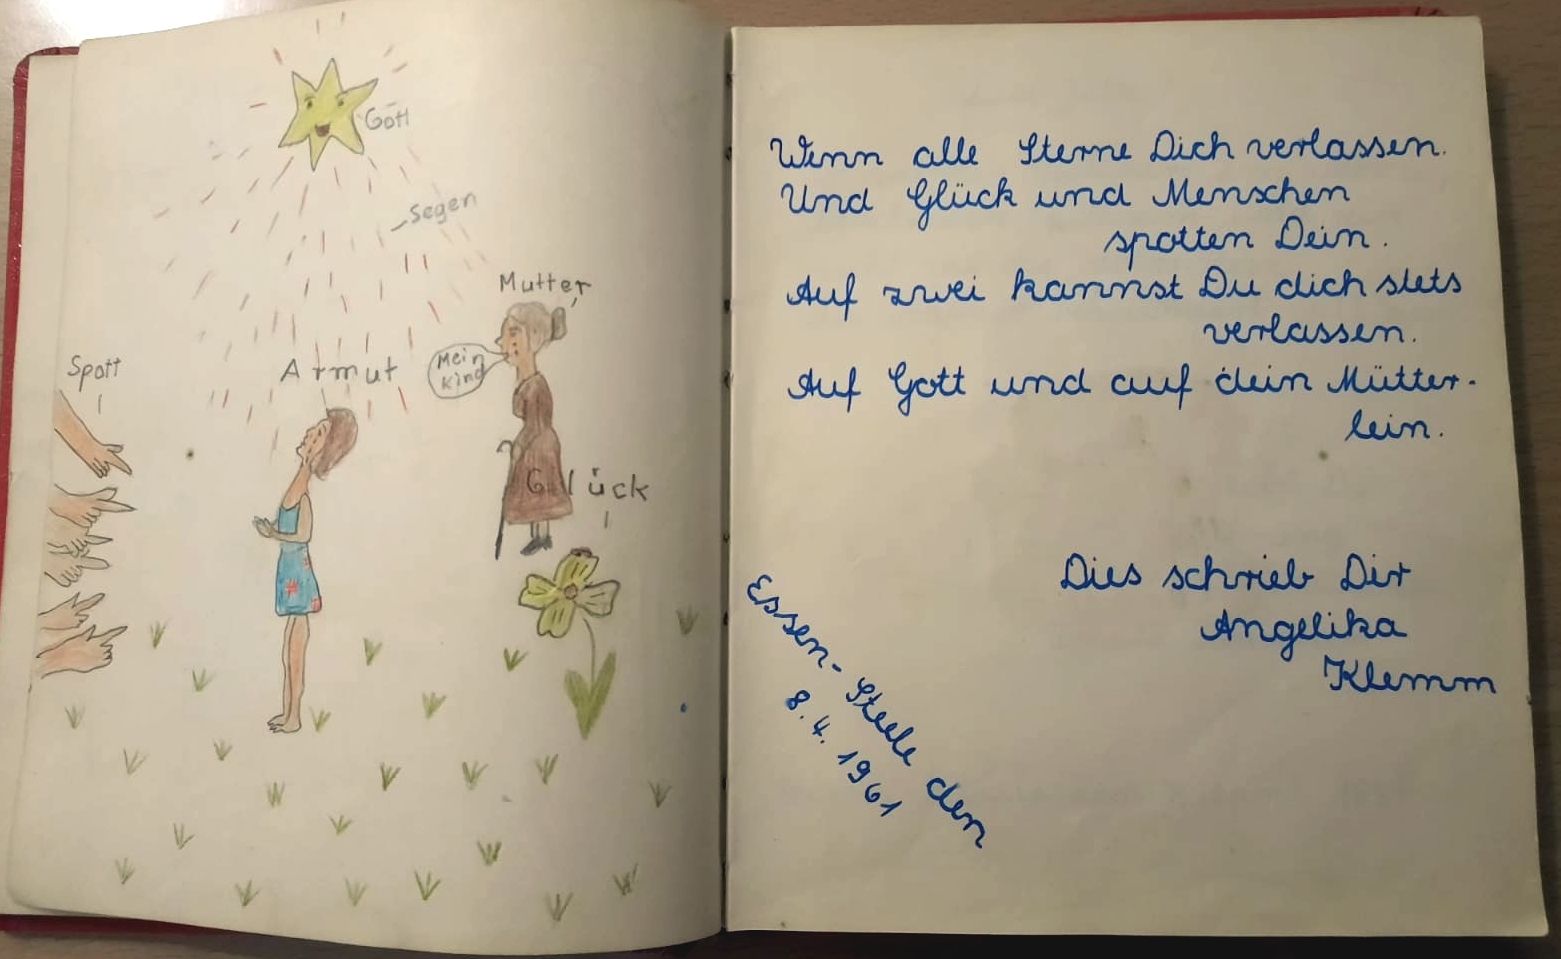 Gott
Segen
Mutter
Mein
Kind
Spott
Armut
Glück
Wenn alle Sterne Dich verlassen.
Und Glück und Menschen
spotten Dein.
Auf zwei kannst Du dich stets
verlassen.
Auf Gott und auf dein Mütter-
lein.
Dies schrieb Dir
Angelika
Klemm
Essen-Steele den
8.4.1961